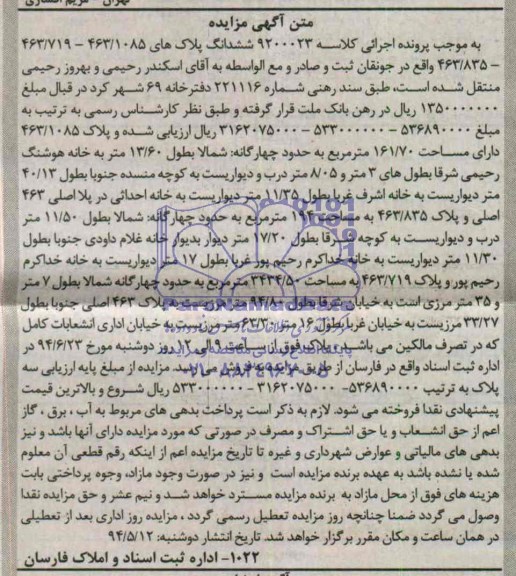 متن آگهی مزایده
به موجب پرونده اجرائی کلاسه ۹۲۰۰۰۲۳ ششدانگ پلاک های ۴۶۳/۱۰۸۵ – ۴۶۳/۷۱۹
– ۴۶۳/۸۳۵ واقع در جونقان ثبت و صادر و مع الواسطه به آقای اسکندر رحیمی و بهروز رحیمی
منتقل شده است، طبق سند رهنی شماره ۲۲۱۱۱۶ دفترخانه ۶۹ شهر کرد در قبال مبلغ
۱۳۵۰۰۰۰۰۰۰ ریال در رهن بانک ملت قرار گرفته و طبق نظر کارشناس رسمی به ترتیب به
مبلغ ۵۳۶۸۹۰۰۰۰ – ۵۳۳۰۰۰۰۰۰ – ۳۱۶۲۰۷۵۰۰۰ ریال ارزیابی شده و پلاک ۴۶۳/۱۰۸۵
دارای مساحت ۱۶۱/۷۰ مترمربع به حدود چهارگانه: شمالا بطول ۱۳/۶۰ متر به خانه هوشنگ
رحیمی شرقا بطول های ۳ متر و ۸/۰۵ متر درب و دیواریست به کوچه منسده جنوبا بطول ۴۰/۱۳
متر دیواریست به خانه اشرف غربا بطول ۱۱/۳۵ متر دیواریست به خانه احداثی در پلا اصلی ۴۶۳
اصلی و پلاک ۴۶۳/۸۳۵ به مساحت ۱۹۴ مترمربع به حدود چهارگانه: شمالا بطول ۱۱/۵۰ متر
درب و دیواریست به کوچه شرقا بطول ۱۷/۲۰ متر دیوار بدیوار خانه غلام داودی جنوبا بطول
۱۱/۳۰ متر دیواریست به خانه خداکرم رحیم پور غربا بطول ۱۷ متر دیواریست به خانه خداکرم
رحیم پور و پلاک ۴۶۳/۷۱۹ به مساحت ۳۴۳۴/۵۰ مترمربع به حدود چهارگانه شمالا بطول ۷ متر
و ۳۵ متر مرزی است به خیابان شرقا بطول ۹۴/۸۰ متر مرزیست به پلاک ۴۶۳ اصلی جنوبا بطول
۳۳/۲۷ مرزیست به خیابان غربا بطول ۱۶ متر ۶۳/۳۰ متر مرزیست به خیابان اداری انشعابات کامل
که در تصرف مالکین می باشد، پلاک فوق از ساعت ۹ الی ۱۲ روز دوشنبه مورخ ۹۴/۶/۲۳ در
اداره ثبت اسناد واقع در فارسان از طریق مزایده به فروش می رسد. مزایده از مبلغ پایه ارزیابی سه
پلاک به ترتیب ۵۳۶۸۹۰۰۰۰– ۳۱۶۲۰۷۵۰۰۰ – ۵۳۳۰۰۰۰۰۰ ریال شروع و بالاترین قیمت
پیشنهادی نقدا فروخته می شود. لازم به ذکر است پرداخت بدهی های مربوط به آب ، برق ، گاز
اعم از حق انشعاب و یا حق اشتراک و مصرف در صورتی که مورد مزایده دارای آنها باشد و نیز
بدهی های مالیاتی و عوارض شهرداری و غیره تا تاریخ مزایده اعم از اینکه رقم قطعی آن معلوم
شده یا نشده باشد به عهده برنده مزایده است و نیز در صورت وجود مازاد، وجوه پرداختی بابت
هزینه های فوق از محل مازاد به برنده مزایده مسترد خواهد شد و نیم عشر و حق مزایده نقدا
وصول می گردد ضمنا چنانچه روز مزایده تعطیل رسمی گردد ، مزایده روز اداری بعد از تعطیلی
در همان ساعت و مکان مقرر برگزار خواهد شد. تاریخ انتشار دوشنبه: ۹۴/۵/۱۲
۱۰۲۲- اداره ثبت اسناد و املاک فارسان